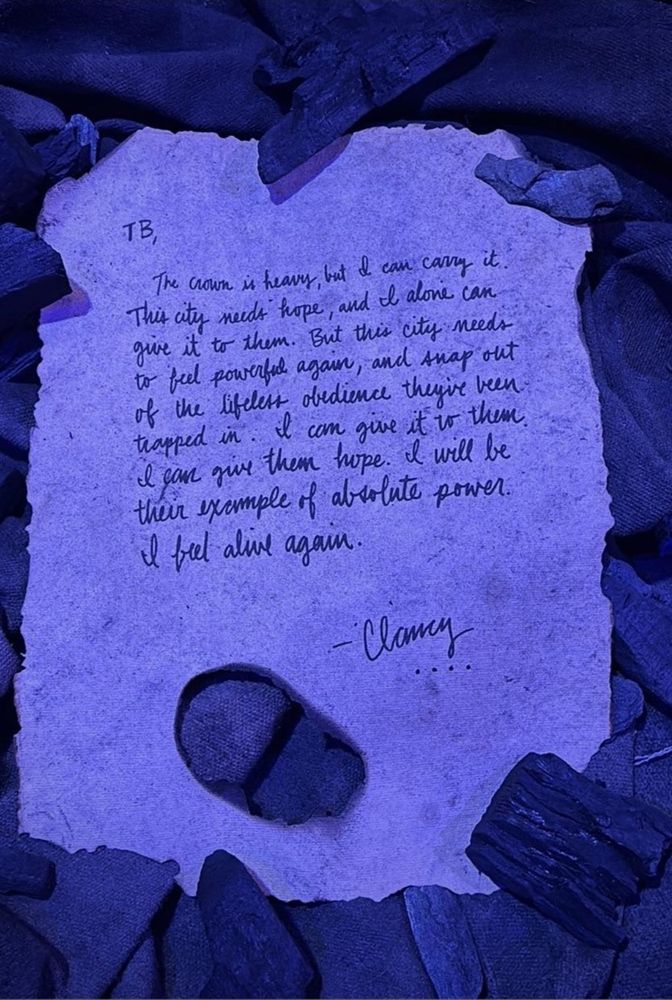 TB,
The crown is heavy, but I can carry it.
This city needs hope, and I alone can
give it to them. But this city needs
to feel powerful again, and snap out
of the lifeless obedience they've been
trapped in. I can give it to them.
I can give them hope. I will be
their example of absolute power.
I feel alive again.
- Clancy
....